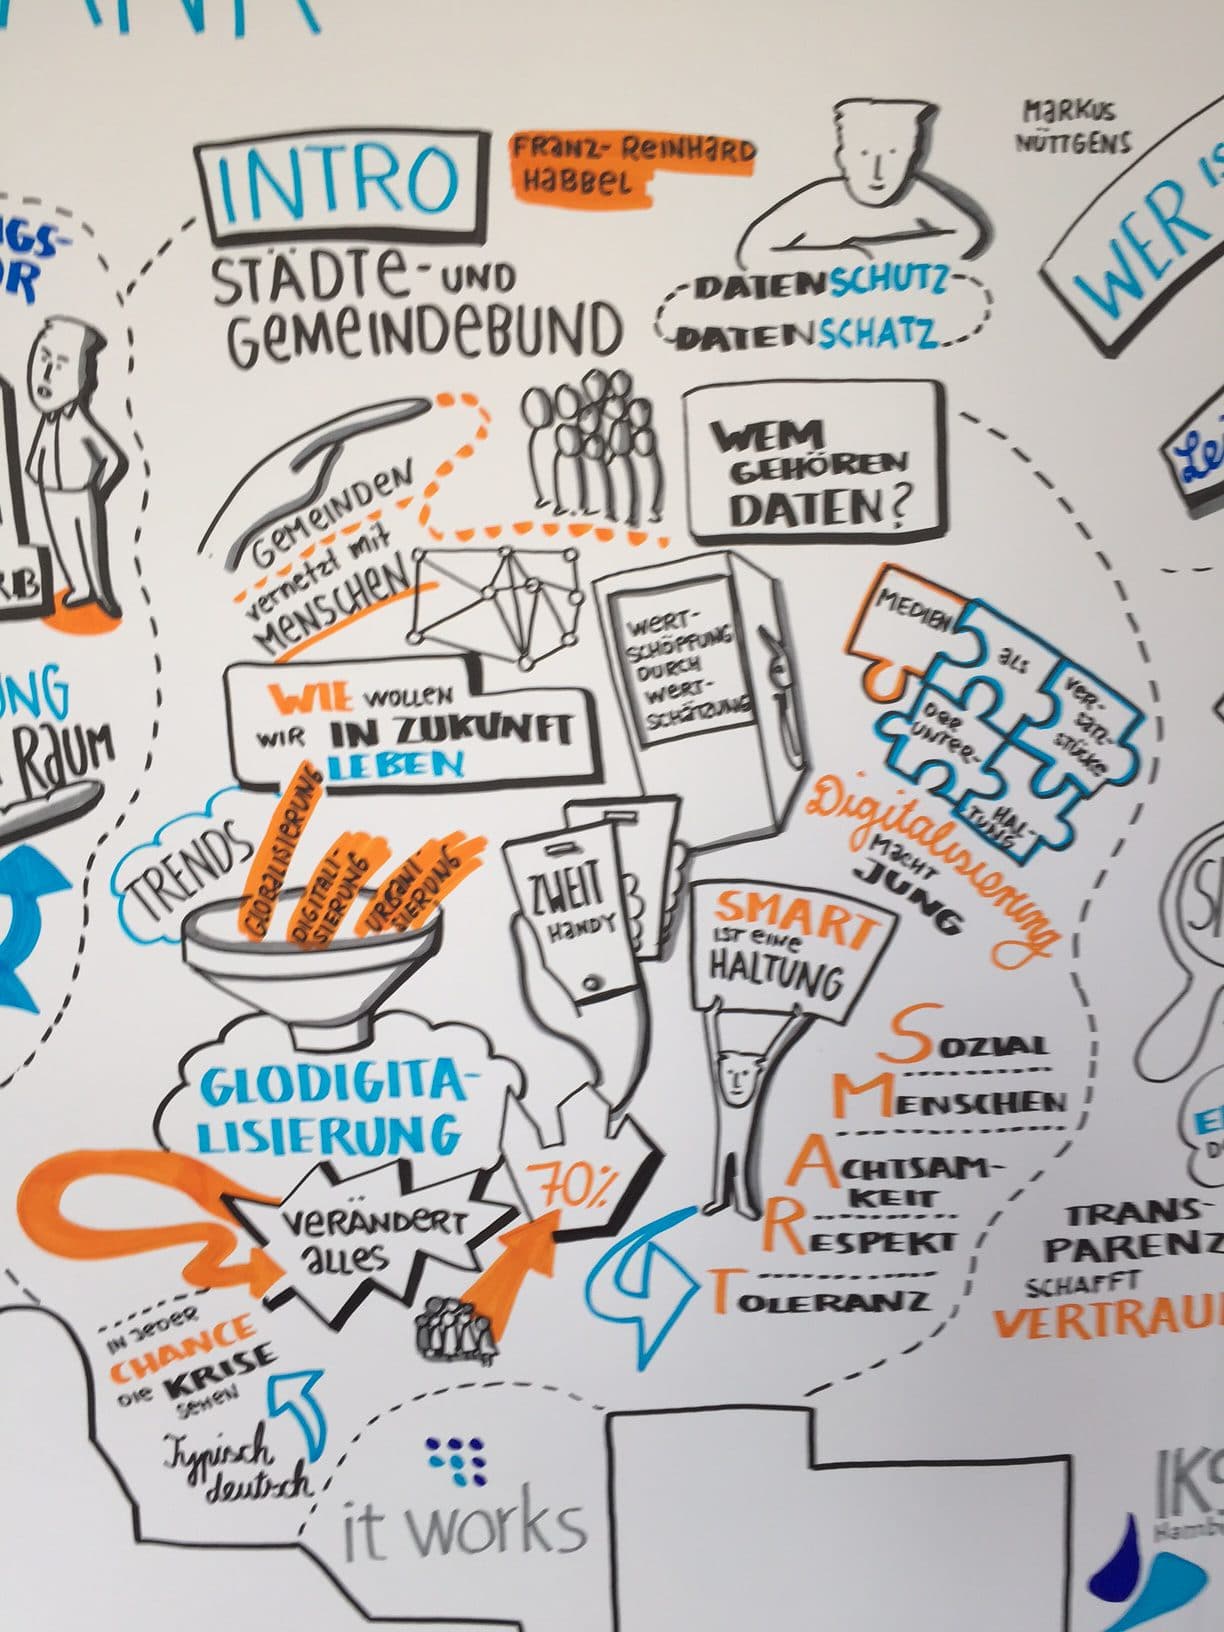 INTRO
FRANZ-REINHARD
HABBEL
STÄDTE-UND
GEMEINDEBUND
MARKUS
NÜTTGENS
WER IS
DATENSCHUTZ
DATENSCHATZ
GEMEINDEN
vernetzt mit
MENSCHEN
WEM
GEHÖREN
DATEN?
WERT-
SCHÖPFUNG
DURCH
WERT-
SCHÄTZUNG
MEDIEN
als
VER-
SATZ-
STÜCKE
DER
UNTER-
HAL-
TUNG
WIE WOLLEN
WIR IN ZUKUNFT
LEBEN
Digitalisierung
MACHT
JUNG
TRENDS
GLOBALISIERUNG
DIGITALI-
SIERUNG
URBANI-
SIERUNG
ZWEIT
HANDY
SMART
IST EINE
HALTUNG
GLODIGITA-
LISIERUNG
VERÄNDERT
alles
70%
SOZIAL
MENSCHEN
ACHTSAM-
KEIT
RESPEKT
TOLERANZ
IN JEDER
CHANCE
DIE KRISE
SEHEN
Typisch
deutsch
TRANS-
PARENZ
SCHAFFT
VERTRAU
it works
UNG
RAUM